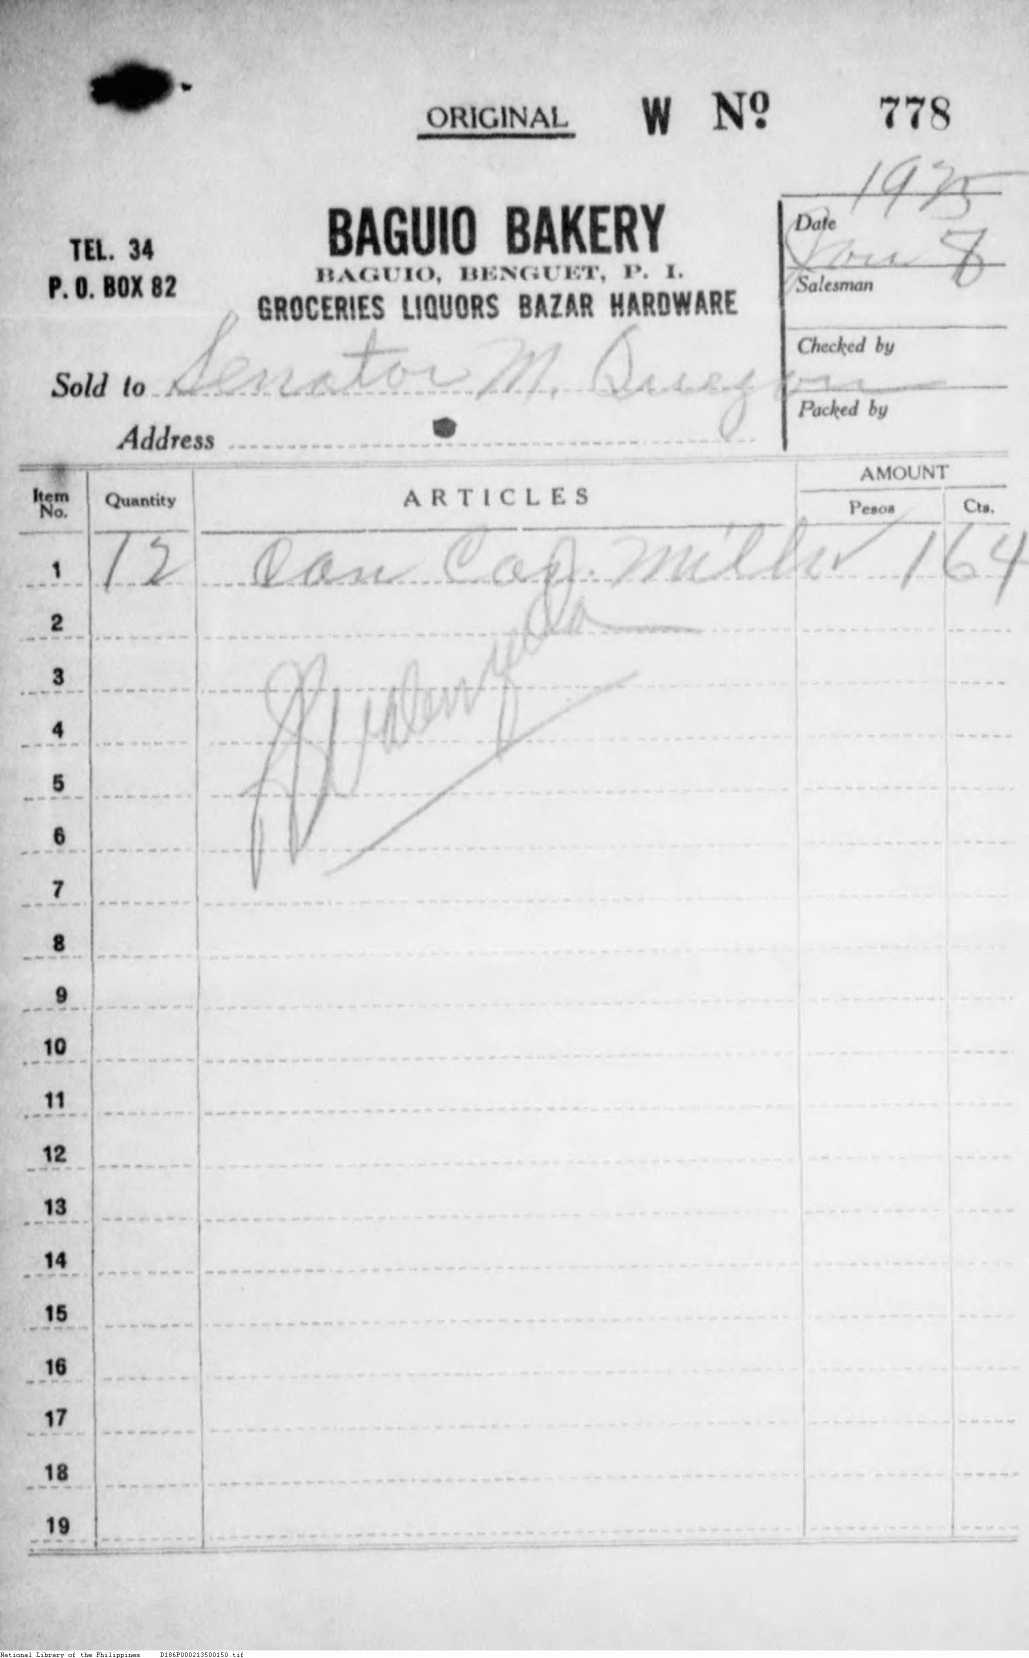 ORIGINAL W Nº 778
1925
TEL. 34
P. O. BOX 82
BAGUIO BAKERY
BAGUIO, BENGUET, P. I.
GROCERIES LIQUORS BAZAR HARDWARE
Date Jan 8
Salesman
Checked by
Packed by
Sold to Senator M. Quezon
Address
Item No. Quantity ARTICLES AMOUNT
Pesos Cts.
1 12 Can Milk 1 64
2
3
4
5
6
7
8
9
10
11
12
13
14
15
16
17
18
19
National Library of the Philippines D186P000213500150.tif